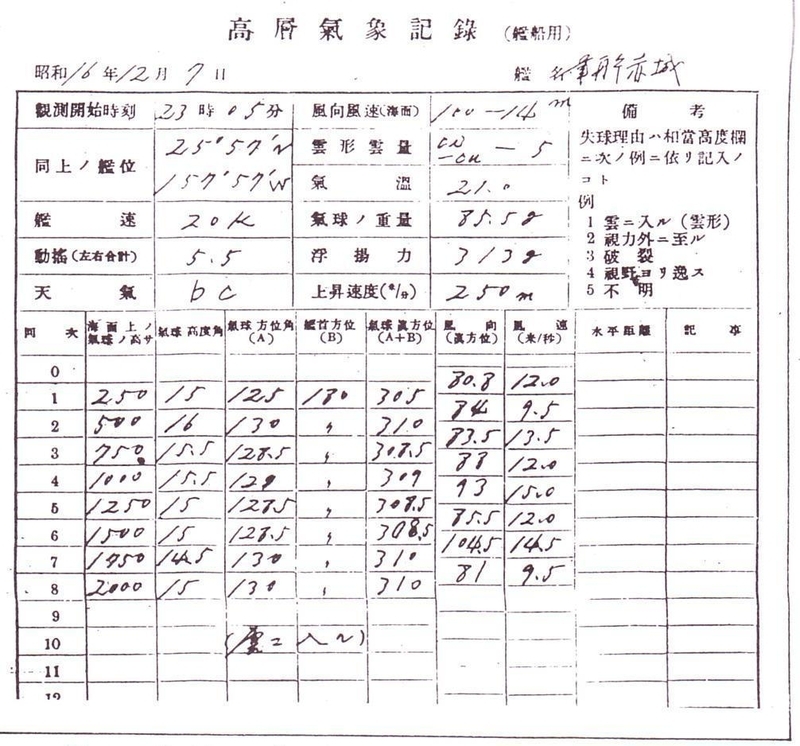 高層氣象記錄(艦船用)
昭和16年12月7日 艦名 軍艦赤城
觀測開始時刻 23時05分 風向風速(海面) 100-14m 備考
同上ノ艦位 25°57'N 157°57'W 雲形雲量 -5
氣溫 21.0
艦速 20K 氣球ノ重量 85.5g
動搖(左右合計) 5.5 浮揚力 313g
天氣 bc 上昇速度(米/分) 250m
失球理由ハ相當高度欄
ニ次ノ例ニ依リ記入ノ
コト
例
1 雲ニ入ル(雲形)
2 視力外ニ至ル
3 破裂
4 視野ヨリ逸ス
5 不明
回次 海面上ノ氣球ノ高サ 氣球高度角 氣球方位角(A) 艦首方位(B) 氣球眞方位(A+B) 風向(眞方位) 風速(米/秒) 水平距離 記事
0
80.8 12.0
1 250 15 125 180 305
84 9.5
2 500 16 130 〃 310
83.5 13.5
3 750 15.5 128.5 〃 308.5
88 12.0
4 1000 15.5 129 〃 309
93 15.0
5 1250 15 128.5 〃 308.5
85.5 12.0
6 1500 15 128.5 〃 308.5
104.5 14.5
7 1750 14.5 130 〃 310
81 9.5
8 2000 15 130 〃 310
9
10 (雲ニ入ル)
11
12